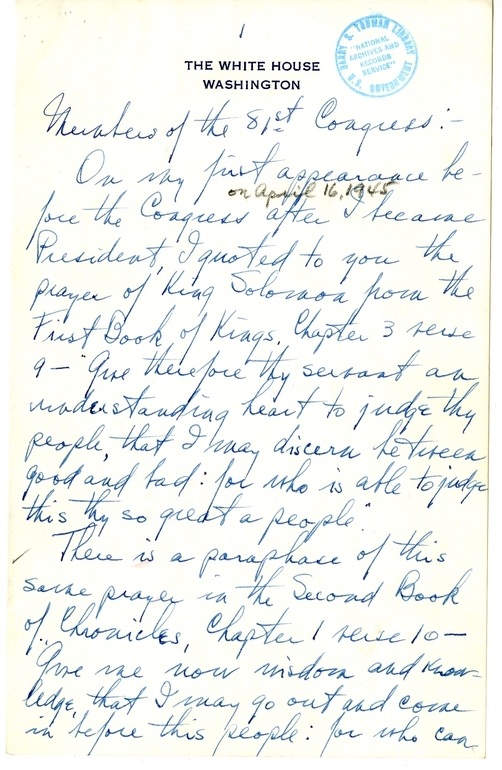 1
HARRY S. TRUMAN LIBRARY
"NATIONAL
ARCHIVES AND
RECORDS
SERVICE"
U.S. GOVERNMENT
THE WHITE HOUSE
WASHINGTON
Members of the 81st Congress:-
On my first appearance be-
on April 16, 1945
fore the Congress after I became
President, I quoted to you the
prayer of King Solomon from the
First Book of Kings, Chapter 3 verse
9 - "Give therefore thy servant an
understanding heart to judge thy
people, that I may discern between
good and bad: for who is able to judge
this thy so great a people"
There is a paraphase of this
same prayer in the Second Book
of Chronicles, Chapter 1 verse 10 -
Give me now wisdom and know-
ledge, that I may go out and come
in before this people: for who can